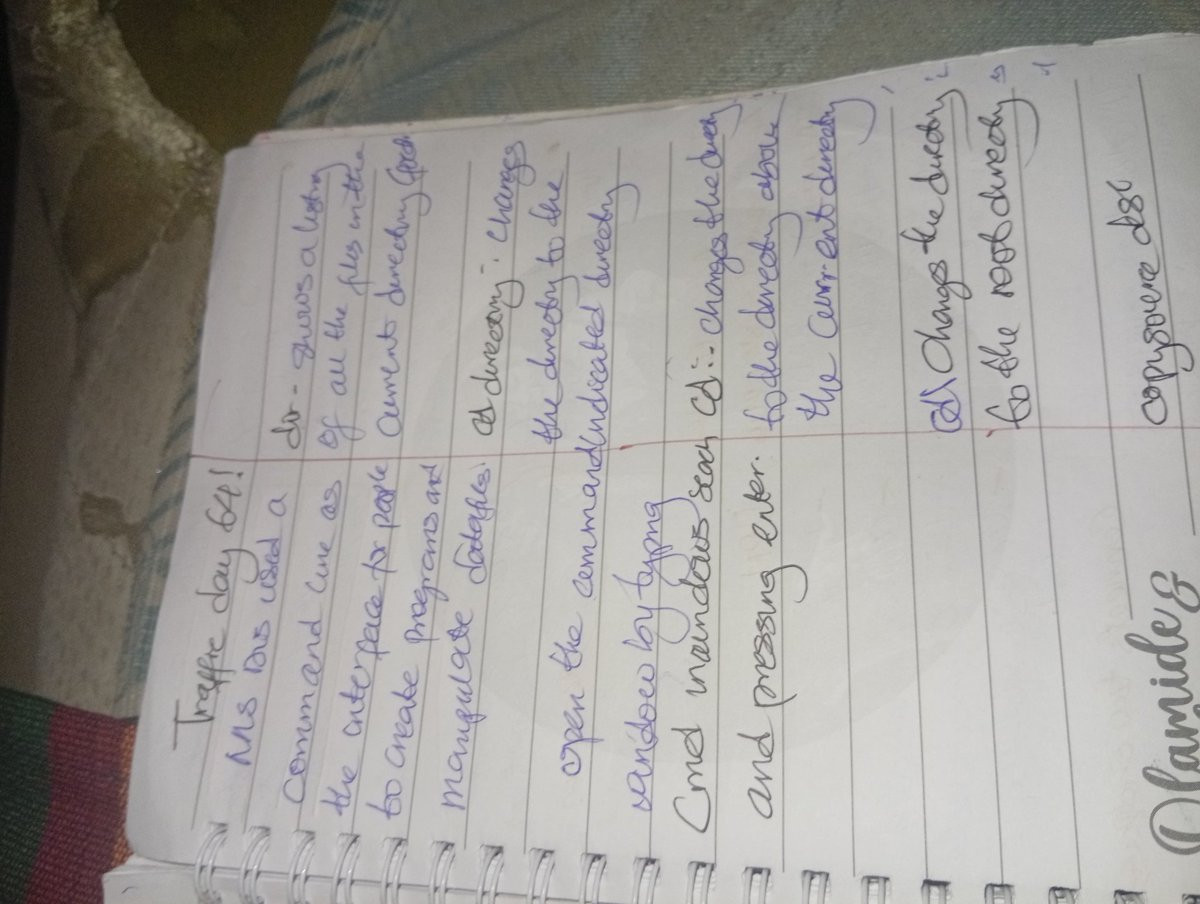 Traffic day 64!
MS Dos used a
command line as
the interface for people
to create programs and
manipulate datafiles.
open the command
window by typing
Cmd in windows seach
and pressing enter.
dir - shows a listing
of all the files in the
current directory
cd directory :- changes
the directory to the
indicated directory
cd :- changes the directory
to the directory above
the current directory
cd\ Changes the directory
to the root directory
copy
Olamide